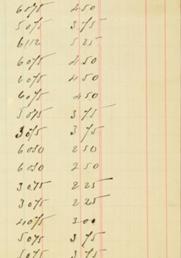 6075 4 50
5075 3 75
6112 5 25
6075 4 50
6075 4 50
6075 4 50
5075 3 75
3075 3 75
6050 2 50
6050 2 50
3075 2 25
3075 2 25
4075 3 00
5075 3 75
5075 3 75